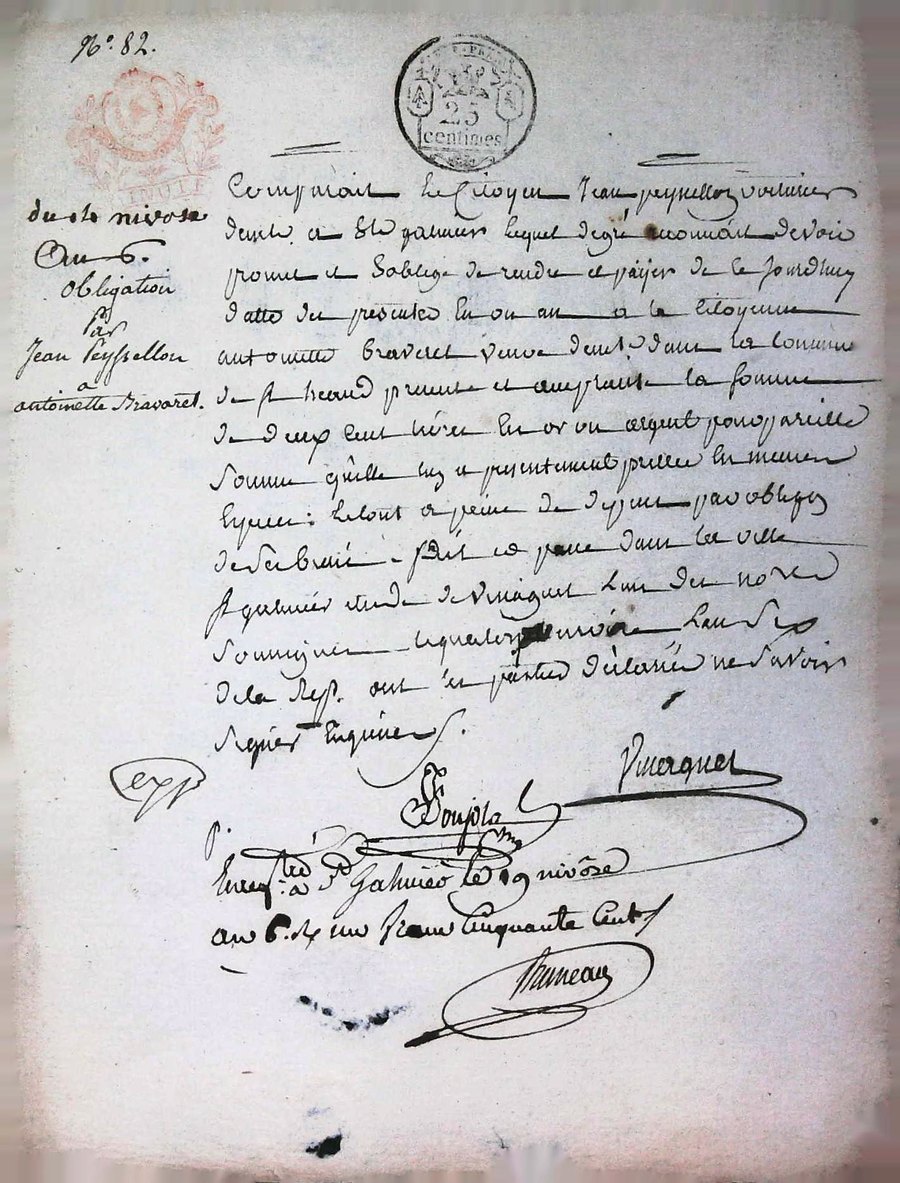 N.° 82.
25
centimes
MINUTE
du 14 nivose
an 6.
obligation
par
Jean Peyssellon
a
antoinette Bravaret.
Comparait le Citoyen Jean peyssellon voiturier
demt. a St. galmier lequel de gré reconnait devoir
promet et soblige de rendre et payer de ce jourdhuy
datte des presentes En un an a la Citoyenne
antoinette bravaret veuve demt. dans la commune
de st. heand presente et acceptante la somme
de deux cent livres En or ou argent pour pareille
somme qu'elle luy a presentement prettée En meme
Espece : le tout a peine de depens par obligon
de ses biens . fait et passé dans la ville
st. galmier etude de vinagues l'un des nores
soussignes le quatorze nivôse l'an Six
de la Rep. ont les parties déclarés ne savoir
signer Enquises .
exp
Enregistré a St Galmier le 19 nivôse
an 6. Rx un franc Cinquante Cent.
Bruneau